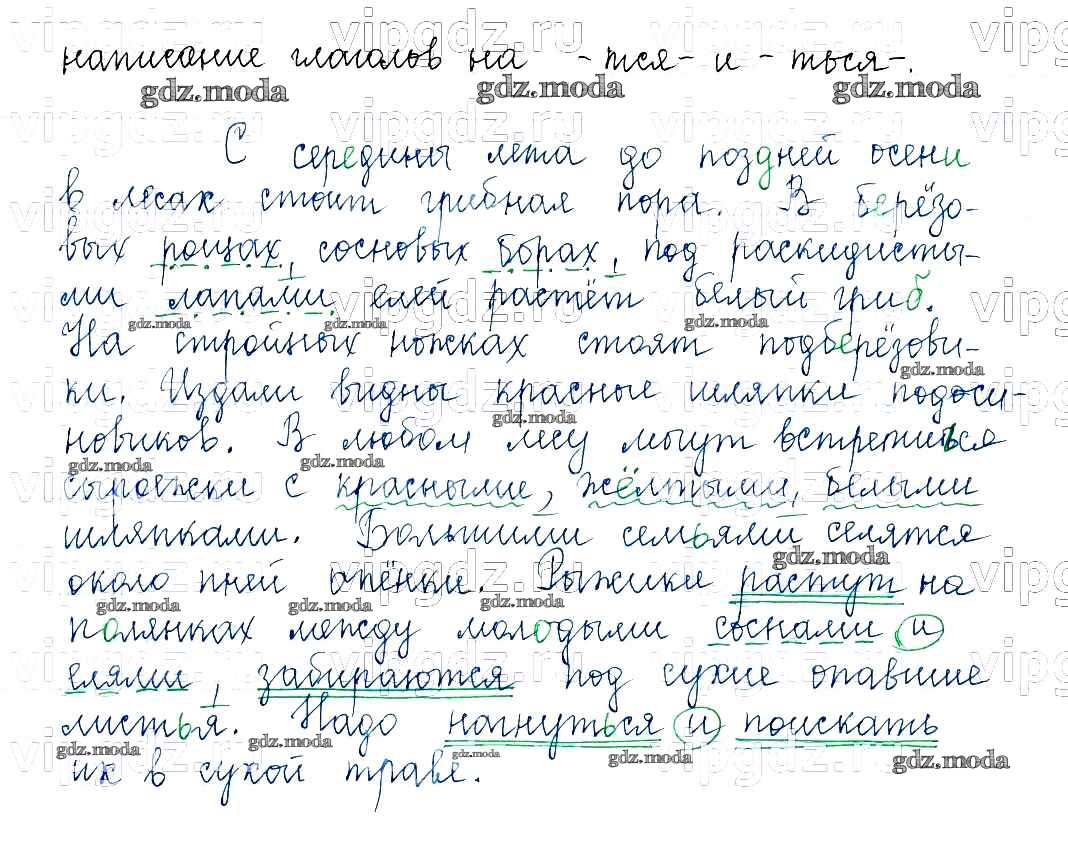 написание глаголов на -тся- и -ться-.
С середины лета до поздней осени
в лесах стоит грибная пора. В берёзо-
вых рощах, сосновых борах, под раскидисты-
ми лапами елей растёт белый гриб.
На стройных ножках стоят подберёзови-
ки. Издали видны красные шляпки подоси-
новиков. В любом лесу могут встретиться
сыроежки с красными, жёлтыми, белыми
шляпками. Большими семьями селятся
около пней опёнки. Рыжики растут на
полянках между молодыми соснами и
елями, забираются под сухие опавшие
листья. Надо нагнуться и поискать
их в сухой траве.